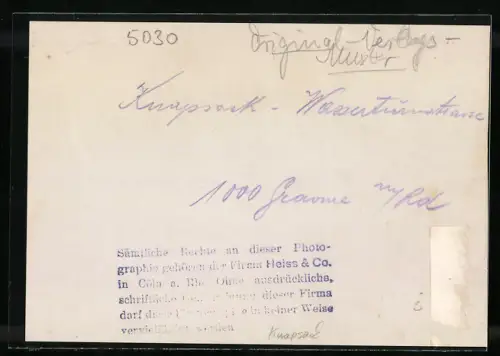 5030
Original-Verlags-
Muster
Knapsack - Wasserturmstrasse
1000 Gramme m/Rd
Sämtliche Rechte an dieser Photo-
graphie gehören der Firma Heiss & Co.
in Cöln a. Rh. Ohne ausdrückliche,
schriftliche dieser Firma
darf in keiner Weise
vervielfältigt werden
Knapsack